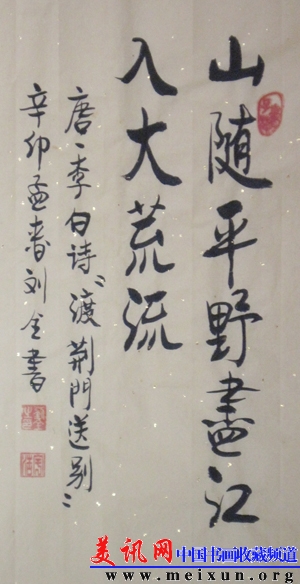 山随平野盡江
入大荒流
唐、李白诗“渡荆門送别”
辛卯孟春刘全書
美讯网 中国书画收藏频道
www.meixun.org